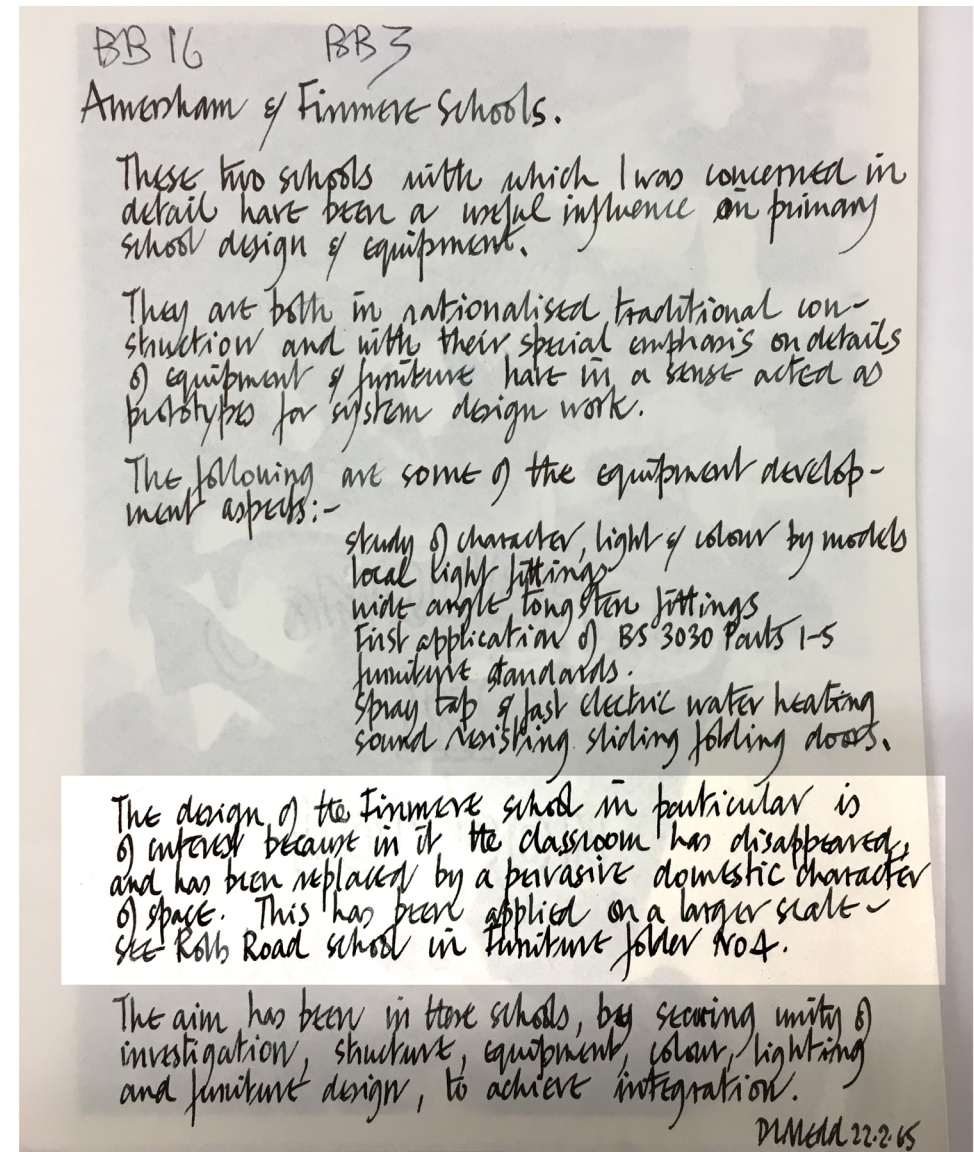 BB 16 BB 3
Amersham & Finmere Schools.
These two schools with which I was concerned in
detail have been a useful influence on primary
school design & equipment.
They are both in rationalised traditional con-
struction and with their special emphasis on details
of equipment & furniture have in a sense acted as
prototypes for system design work.
The following are some of the equipment develop-
ment aspects:-
study of character, light & colour by models
local light fittings
wide angle tungsten fittings
First application of BS 3030 Parts 1-5
furniture standards.
Spray tap & fast electric water heating
sound resisting sliding folding doors.
The design of the Finmere school in particular is
of interest because in it the classroom has disappeared,
and has been replaced by a pervasive domestic character
of space. This has been applied on a larger scale -
SEE Rolls Road school in Furniture folder No 4.
The aim has been in these schools, by securing unity of
investigation, structure, equipment, colour, lighting
and furniture design, to achieve integration.
DLMedd 22.2.65